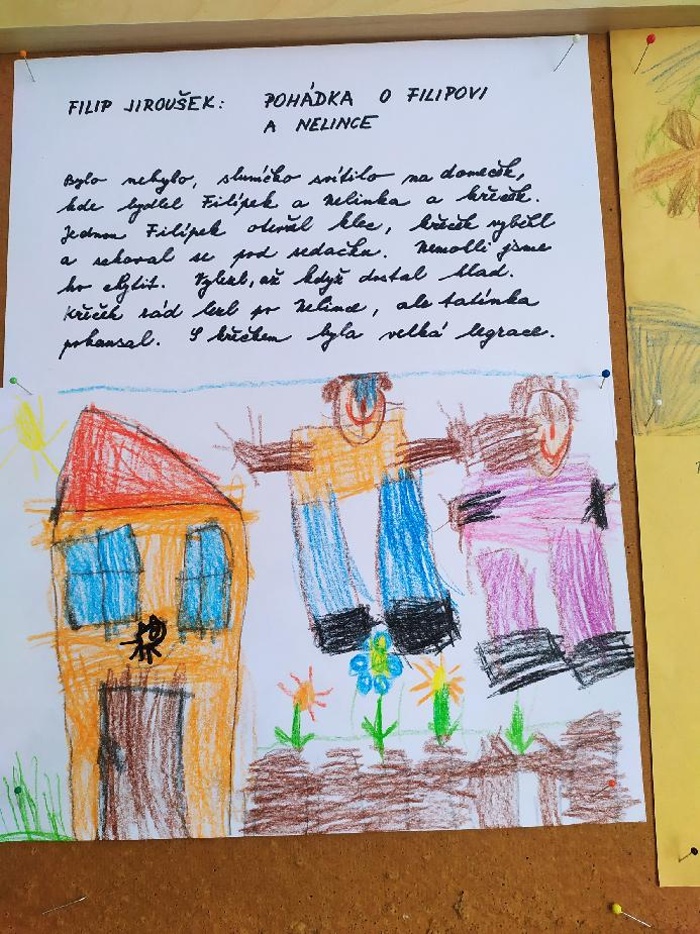 FILIP JIROUŠEK: POHÁDKA O FILIPOVI
A NELINCE
Bylo nebylo, sluníčko svítilo na domeček,
kde bydlel Filípek a Nelinka a křeček.
Jednou Filípek otevřel klec, křeček vyběhl
a schoval se pod sedačku. Nemohli jsme
ho chytit. Vylezl, až když dostal hlad.
Křeček rád lezl po Nelince, ale tatínka
pokousal. S křečkem byla velká legrace.